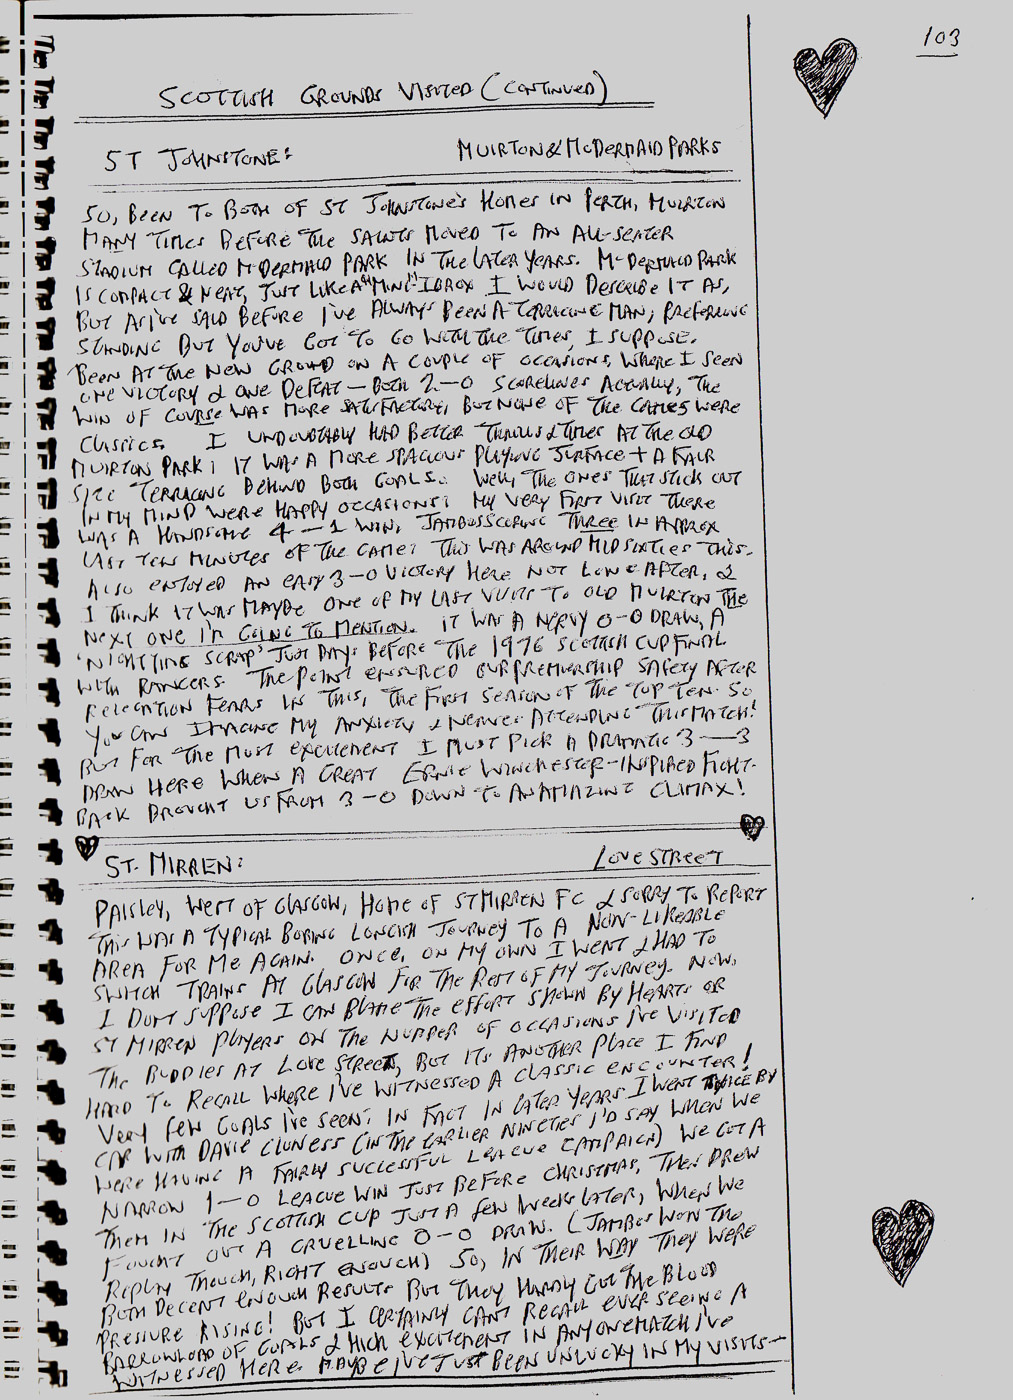 103
SCOTTISH GROUNDS VISITED (CONTINUED)
ST JOHNSTONE: MUIRTON & McDERMAID PARKS
SO, BEEN TO BOTH OF ST JOHNSTONE'S HOMES IN PERTH, MUIRTON
MANY TIMES BEFORE THE SAINTS MOVED TO AN ALL-SEATER
STADIUM CALLED McDERMAID PARK IN THE LATER YEARS. McDERMAID PARK
IS COMPACT & NEAT, JUST LIKE A "MINI" IBROX I WOULD DESCRIBE IT AS,
BUT AS I'VE SAID BEFORE I'VE ALWAYS BEEN A TERRACING MAN, PREFERRING
STANDING BUT YOU'VE GOT TO GO WITH THE TIMES, I SUPPOSE.
BEEN AT THE NEW GROUND ON A COUPLE OF OCCASIONS, WHERE I SEEN
ONE VICTORY & ONE DEFEAT - BOTH 2-0 SCORELINES ACTUALLY, THE
WIN OF COURSE WAS MORE SATISFACTORY, BUT NONE OF THE GAMES WERE
CLASSICS. I UNDOUBTABLY HAD BETTER THRILLS & TIMES AT THE OLD
MUIRTON PARK; IT WAS A MORE SPACIOUS PLAYING SURFACE + A FAIR
SIZE TERRACING BEHIND BOTH GOALS. WELL, THE ONES THAT STICK OUT
IN MY MIND WERE HAPPY OCCASIONS; MY VERY FIRST VISIT THERE
WAS A HANDSOME 4-1 WIN, JAMBOS SCORING THREE IN APPROX
LAST TEN MINUTES OF THE GAME; THIS WAS AROUND MID SIXTIES THIS.
ALSO ENJOYED AN EASY 3-0 VICTORY HERE NOT LONG AFTER, &
I THINK IT WAS MAYBE ONE OF MY LAST VISITS TO OLD MUIRTON THE
NEXT ONE I'M GOING TO MENTION. IT WAS A NERVY 0-0 DRAW, A
'NIGHT TIME SCRAP' JUST DAYS BEFORE THE 1976 SCOTTISH CUP FINAL
WITH RANGERS. THE POINT ENSURED OUR PREMIERSHIP SAFETY AFTER
RELEGATION FEARS IN THIS, THE FIRST SEASON OF THE TOP TEN. SO
YOU CAN IMAGINE MY ANXIETY & NERVES ATTENDING THIS MATCH!
BUT FOR THE MOST EXCITEMENT I MUST PICK A DRAMATIC 3-3
DRAW HERE WHEN A GREAT ERNIE WINCHESTER-INSPIRED FIGHT-
BACK BROUGHT US FROM 3-0 DOWN TO AN AMAZING CLIMAX!
ST. MIRREN: LOVE STREET
PAISLEY, WEST OF GLASGOW, HOME OF ST MIRREN FC & SORRY TO REPORT
THIS WAS A TYPICAL BORING LONGISH JOURNEY TO A NON-LIKEABLE
AREA FOR ME AGAIN. ONCE, ON MY OWN I WENT & HAD TO
SWITCH TRAINS AT GLASGOW FOR THE REST OF MY JOURNEY. NOW,
I DON'T SUPPOSE I CAN BLAME THE EFFORT SHOWN BY HEARTS OR
ST MIRREN PLAYERS ON THE NUMBER OF OCCASIONS I'VE VISITED
THE BUDDIES AT LOVE STREET, BUT IT'S ANOTHER PLACE I FIND
HARD TO RECALL WHERE I'VE WITNESSED A CLASSIC ENCOUNTER!
VERY FEW GOALS I'VE SEEN; IN FACT IN LATER YEARS I WENT TWICE BY
CAR WITH DAVIE CLUNESS (IN THE EARLIER NINETIES I'D SAY WHEN WE
WERE HAVING A FAIRLY SUCCESSFUL LEAGUE CAMPAIGN) WE GOT A
NARROW 1-0 LEAGUE WIN JUST BEFORE CHRISTMAS, THEN DREW
THEM IN THE SCOTTISH CUP JUST A FEW WEEKS LATER, WHEN WE
FOUGHT OUT A GRUELLING 0-0 DRAW. (JAMBOS WON THE
REPLAY THOUGH, RIGHT ENOUGH) SO, IN THEIR WAY THEY WERE
BOTH DECENT ENOUGH RESULTS BUT THEY HARDLY GOT THE BLOOD
PRESSURE RISING! BUT I CERTAINLY CAN'T RECALL EVER SEEING A
BARROWLOAD OF GOALS & HIGH EXCITEMENT IN ANY ONE MATCH I'VE
WITNESSED HERE. MAYBE I'VE JUST BEEN UNLUCKY IN MY VISITS-